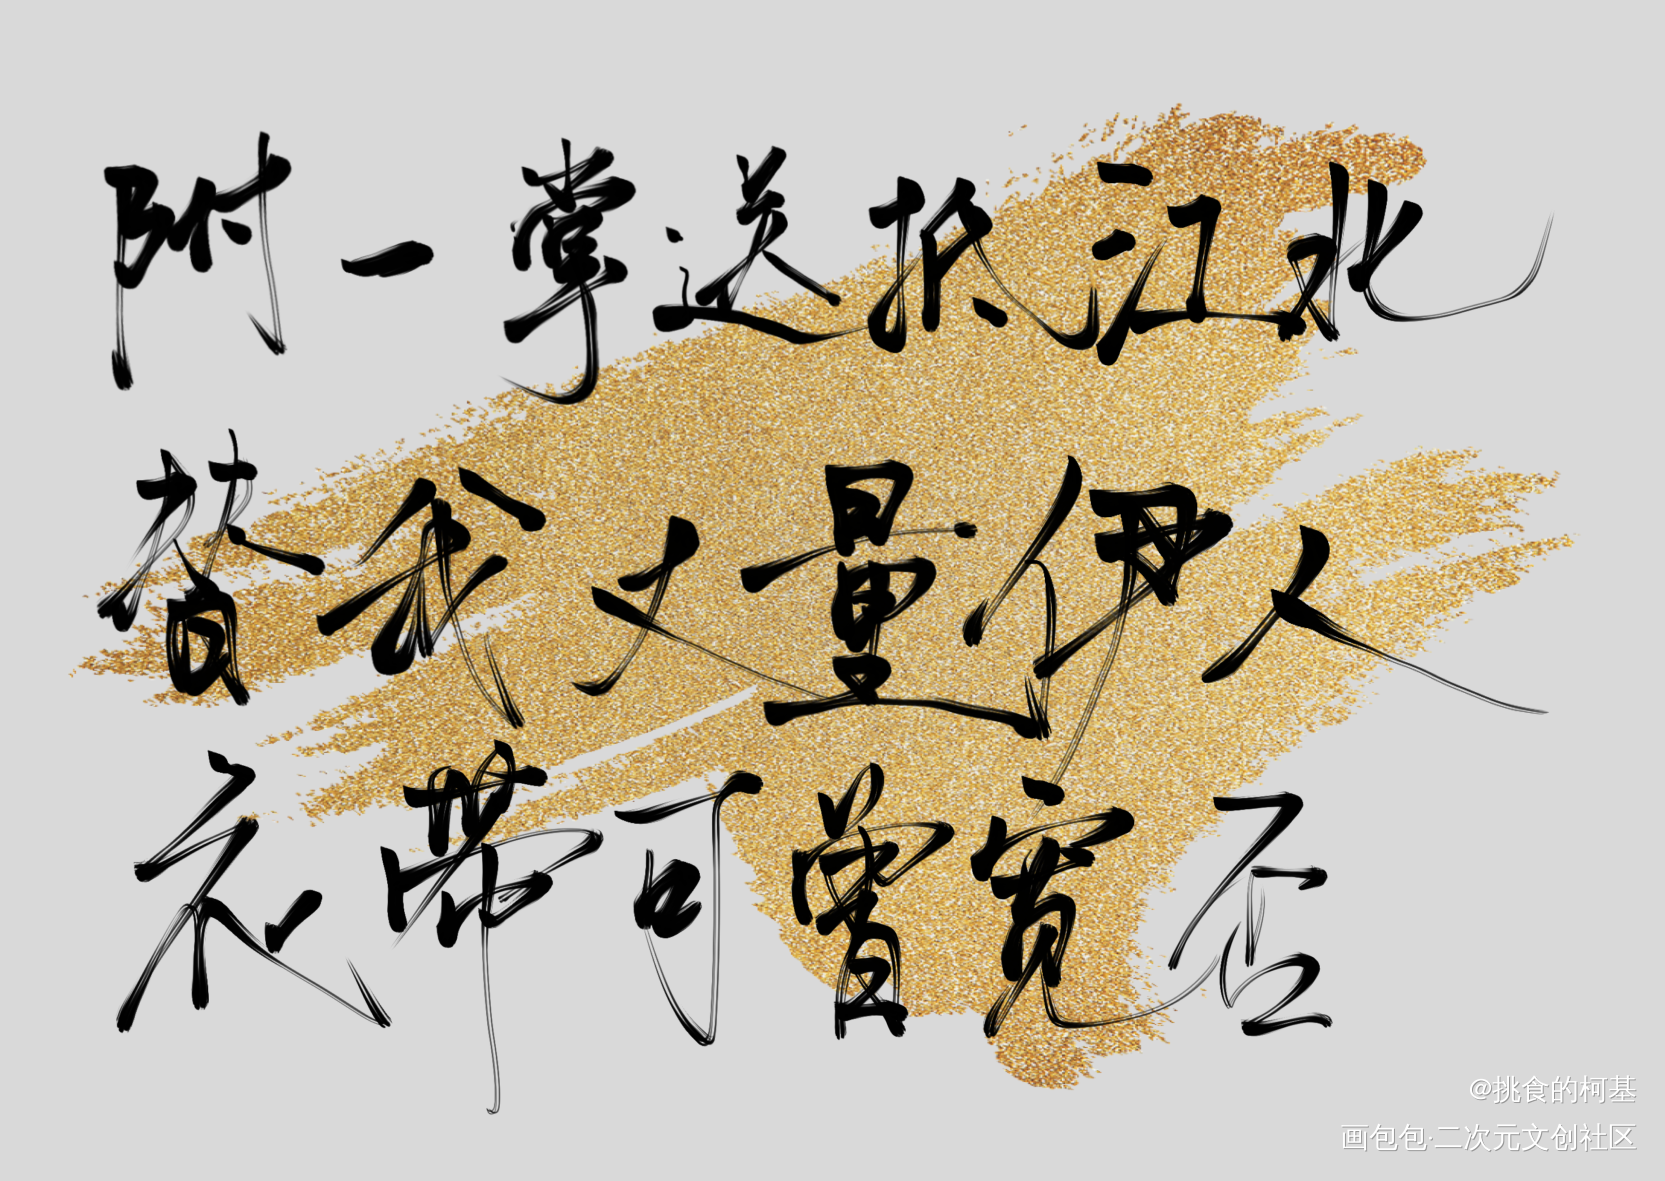 附一掌送抵江北
替我丈量伊人
衣带可曾宽否
@挑食的柯基
画包包·二次元文创社区